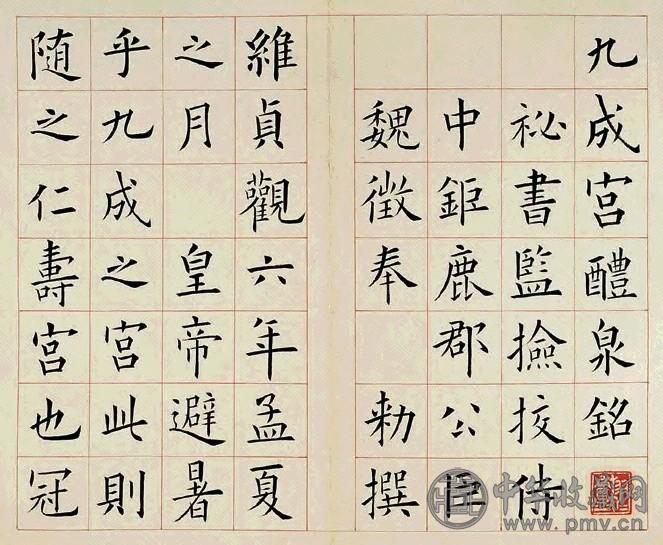 九成宮醴泉銘
祕書監撿挍侍
中鉅鹿郡公臣
魏徵奉 勅撰
維貞觀六年孟夏
之月 皇帝避暑
乎九成之宮此則
随之仁壽宮也冠
中华收藏网
www.pmv.cn